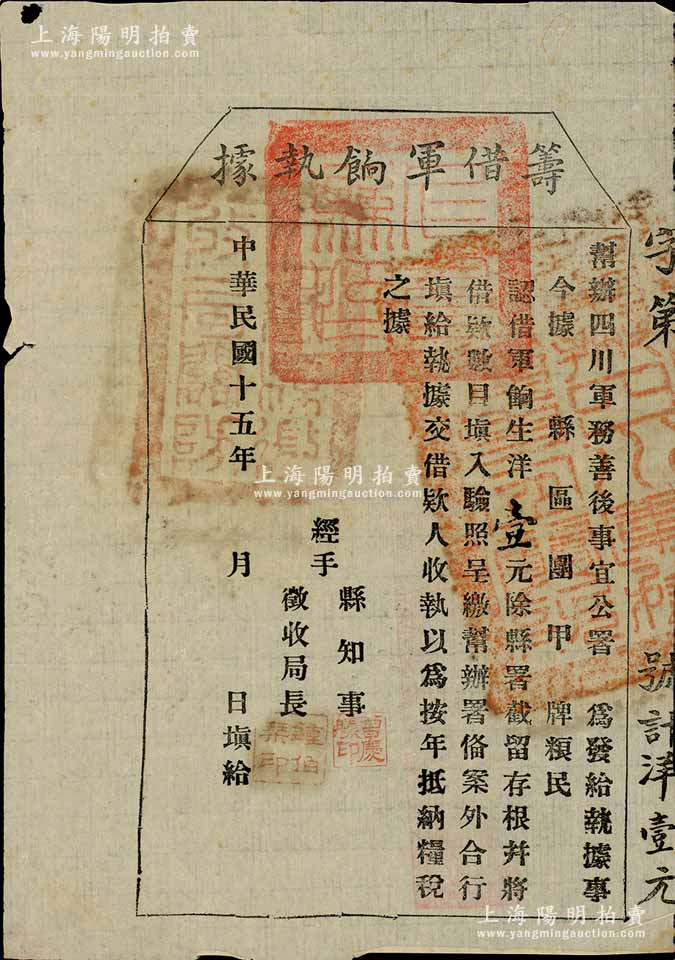 上海陽明拍賣
www.yangmingauction.com
籌借軍餉執據
字第 號計洋壹元
幫辦四川軍務善後事宜公署 為發給執據事
今據 縣 區 團 甲 牌糧民
認借軍餉生洋壹元除縣署截留存根幷將
借欵數目塡入驗照呈繳幫辦署備案外合行
塡給執據交借欵人收執以為按年抵納糧稅
之據
縣知事
經手
徵收局長
中華民國十五年 月 日塡給
上海陽明拍賣
www.yangmingauction.com
上海陽明拍賣
www.yangmingauction.com